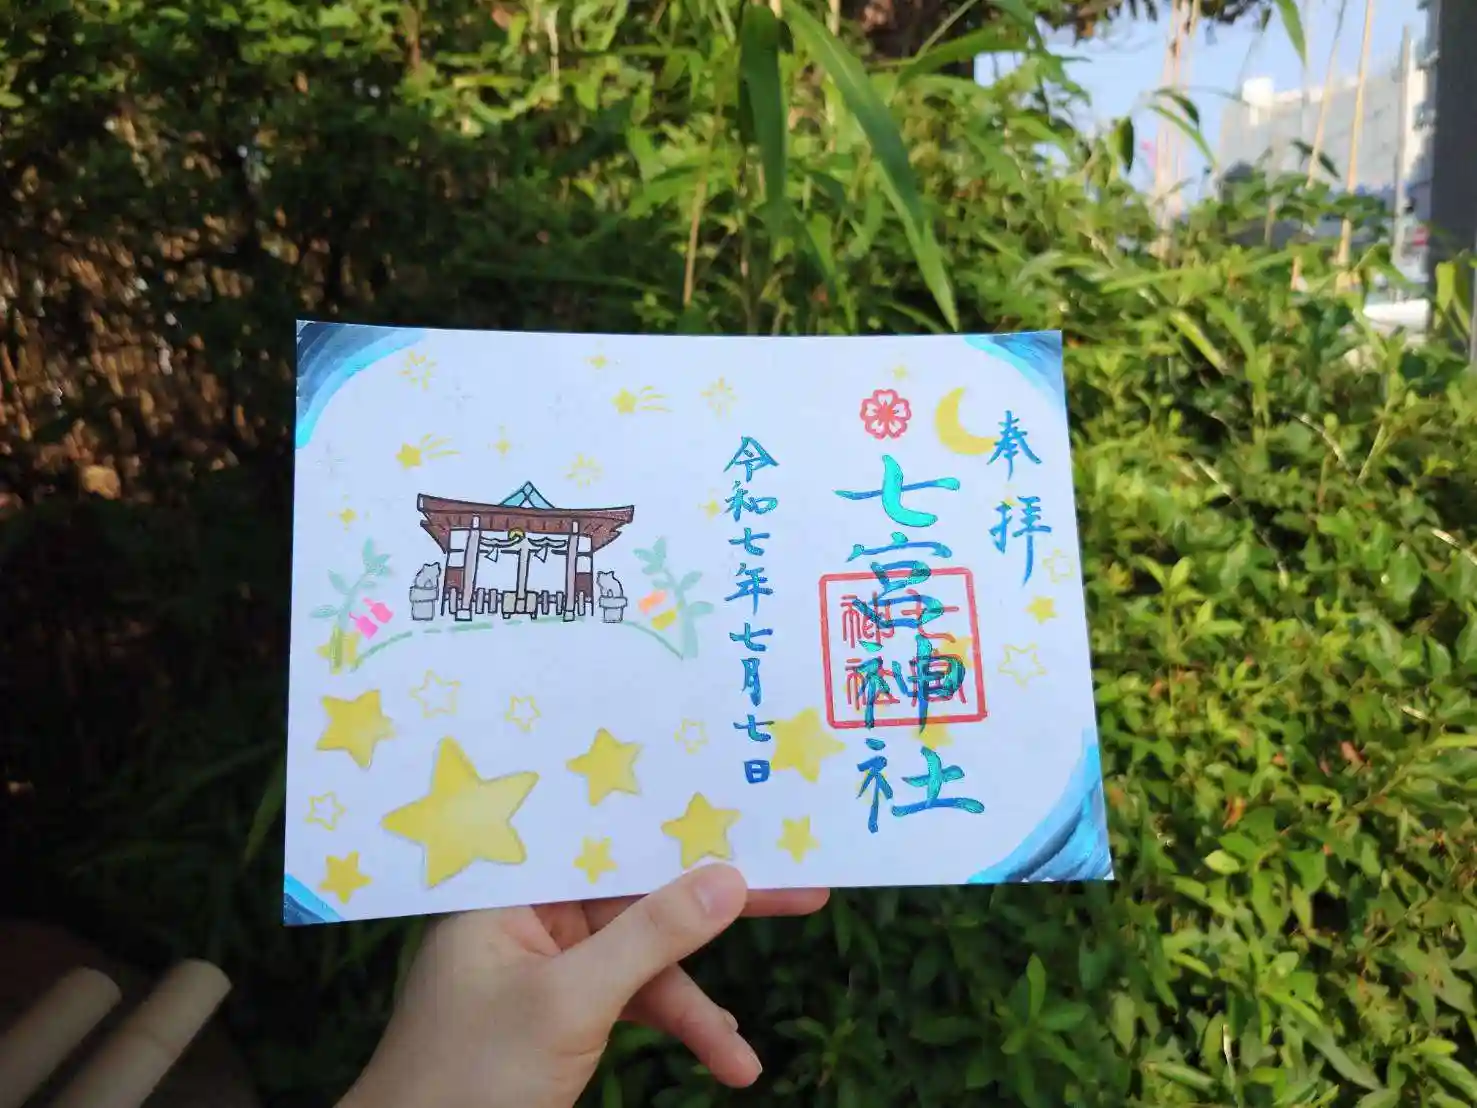 奉拝
七宮神社
七宮神社
令和七年七月七日